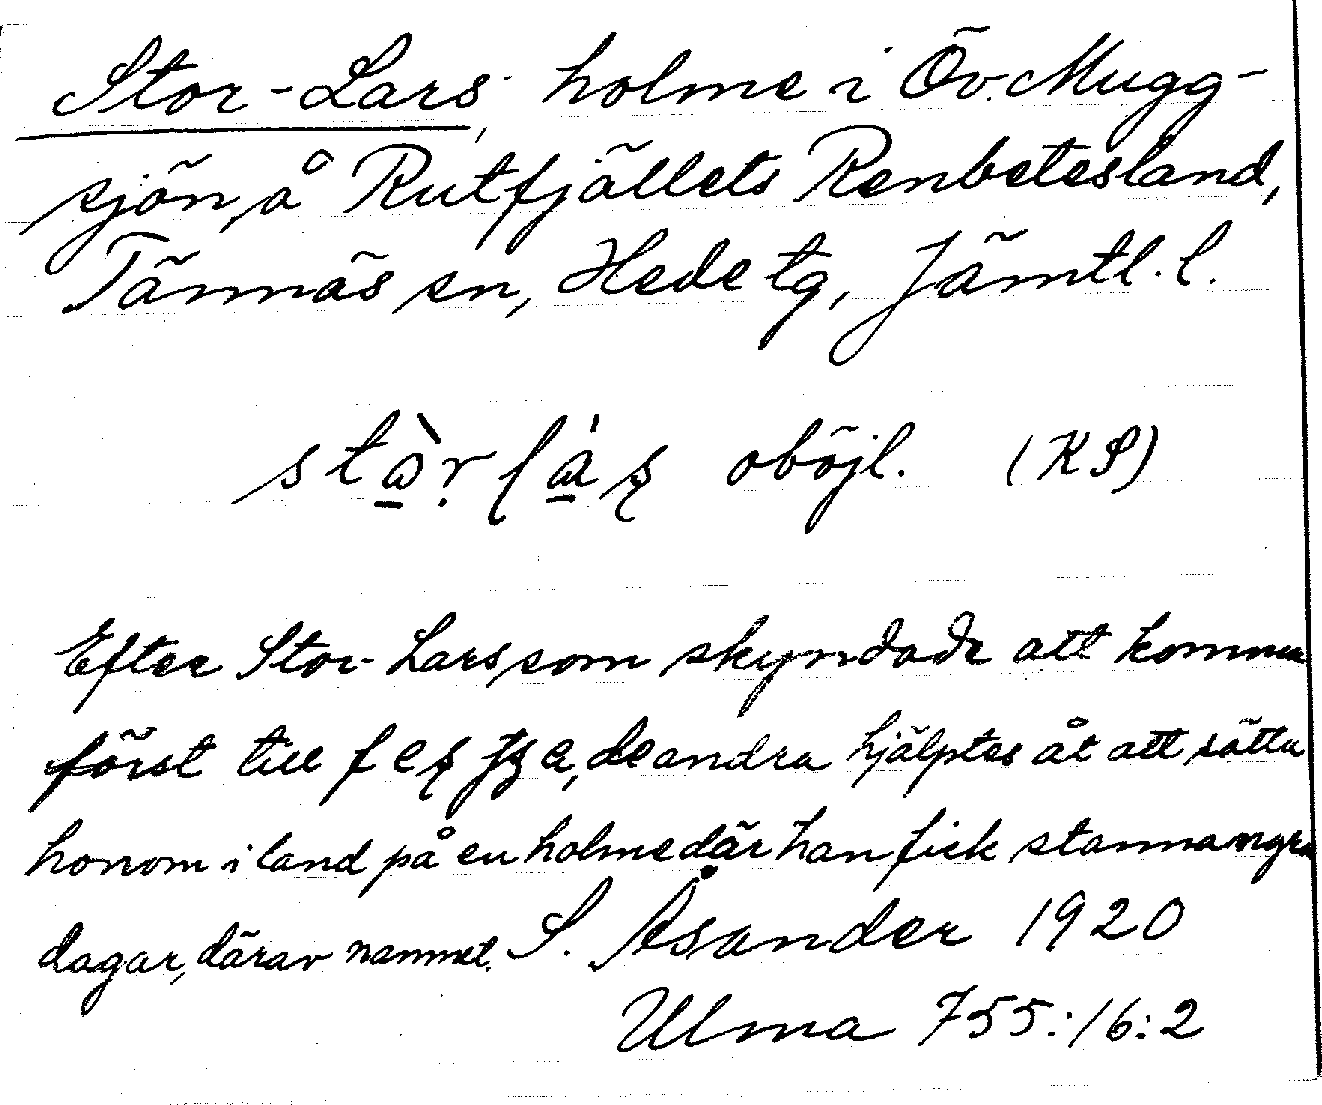 Stor-Lars, holme i Öv. Mugg-
sjön, å Rutfjällets Renbetesland,
Tännäs sn, Hede tg, Jämtl. l.
oböjl. (KS)
Efter Stor-Lars, som skyndade att komma
först till de andra hjälptes åt att sätta
honom i land på en holme där han fick stanna ngra
dagar, därav namnet. S. Åsander 1920
Ulma 755:16:2